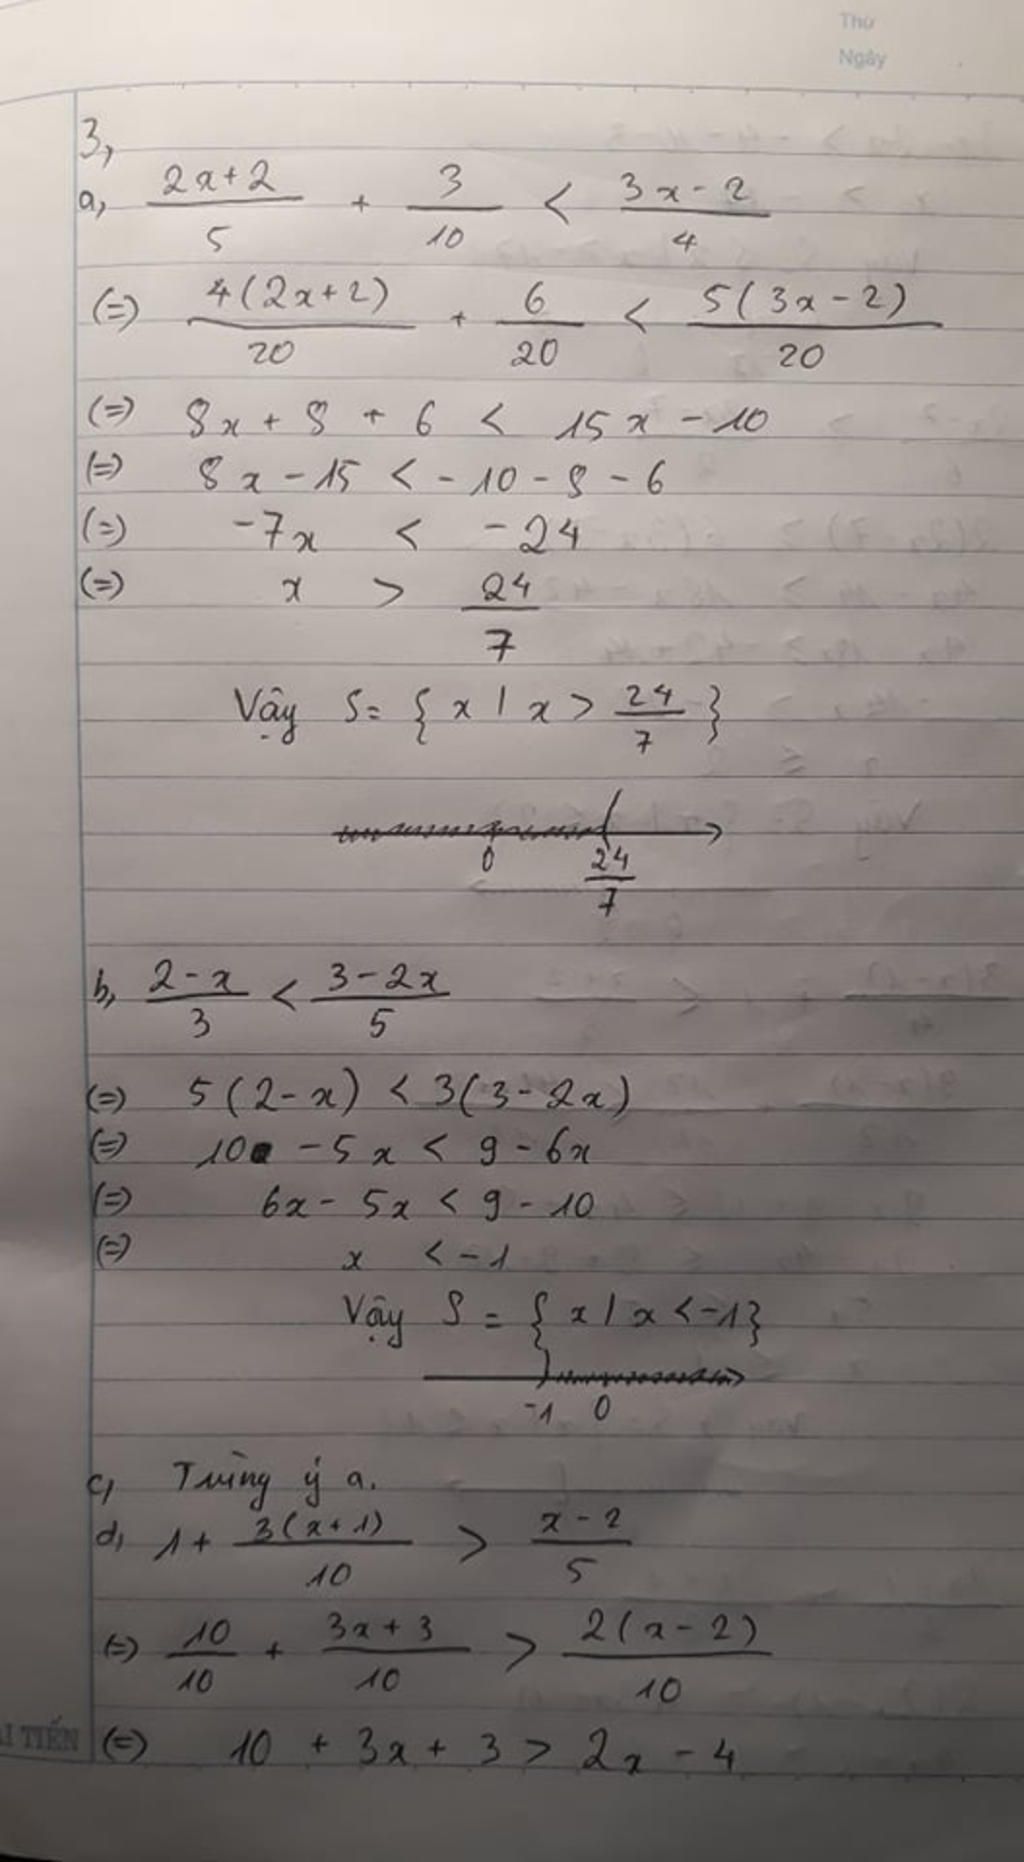 Thứ
Ngày
3,
a, \frac{2x+2}{5} + \frac{3}{10} < \frac{3x-2}{4}
(=) \frac{4(2x+2)}{20} + \frac{6}{20} < \frac{5(3x-2)}{20}
(=) 8x + 8 + 6 < 15x - 10
(=) 8x - 15 < - 10 - 8 - 6
(=) -7x < -24
(=) x > \frac{24}{7}
Vậy S = { x | x > \frac{24}{7} }
0 \frac{24}{7}
b, \frac{2-x}{3} < \frac{3-2x}{5}
(=) 5(2-x) < 3(3-2x)
(=) 10 - 5x < 9 - 6x
(=) 6x - 5x < 9 - 10
(=) x < -1
Vậy S = { x | x < -1}
-1 0
c, Trùng ý a.
d, 1 + \frac{3(x+1)}{10} > \frac{x-2}{5}
(=) \frac{10}{10} + \frac{3x+3}{10} > \frac{2(x-2)}{10}
(=) 10 + 3x + 3 > 2x - 4
TIẾN